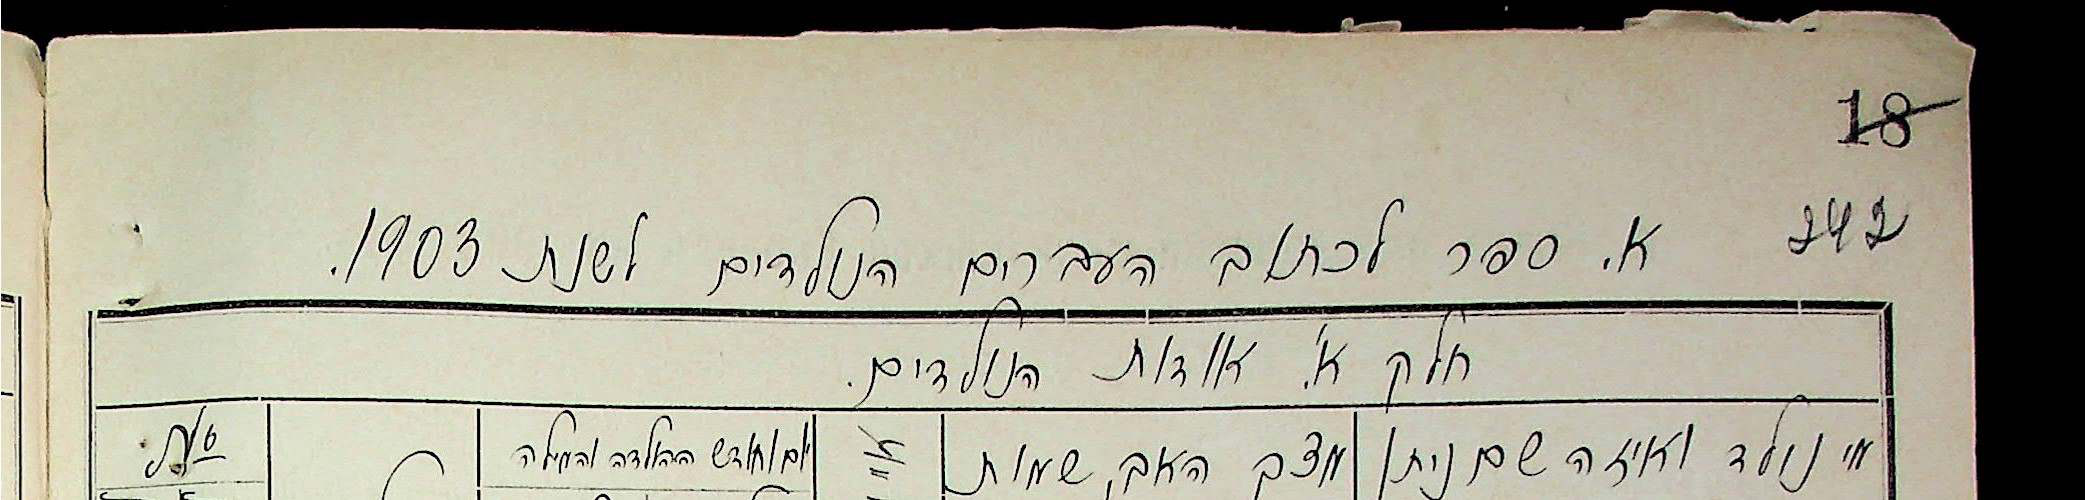 18
242
א. ספר לכתוב העברים הנולדים לשנת 1903.
חלק א'. אודות הנולדים.
מי נולד ואיזה שם ניתן
מצב האב, שמות
יום וחודש ההולדה והמילה